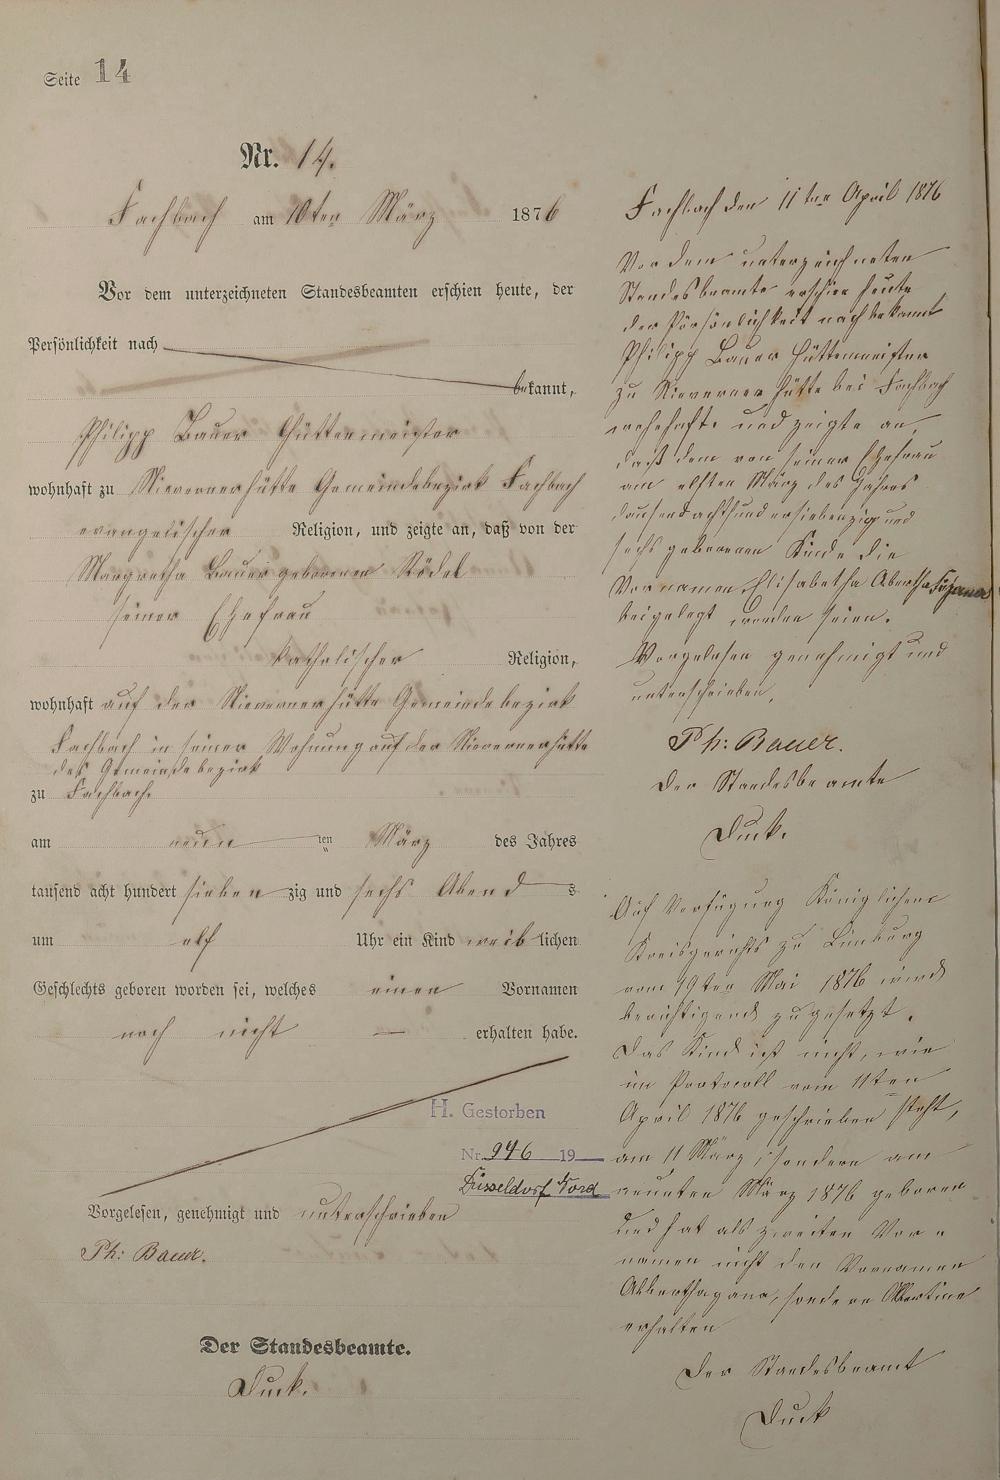 Seite 14
Nr. 14.
Fachbach am 10ten März 1876
Vor dem unterzeichneten Standesbeamten erschien heute, der
Persönlichkeit nach
bekannt,
Philipp Bauer Hüttenmeister
wohnhaft zu Nievernerhütte Gemeindebezirk Fachbach
evangelischer Religion, und zeigte an, daß von der
Margretha Bauer geborenen Rödel
seiner Ehefrau
katholischer Religion,
wohnhaft auf der Nievernerhütte Gemeindebezirk
Fachbach in seiner Wohnung auf der Nievernerhütte
des Gemeindebezirk
zu Fachbach.
am neun ten März des Jahres
tausend acht hundert sieben zig und sechs Abend s
um elf Uhr ein Kind weib lichen
Geschlechts geboren worden sei, welches einen Vornamen
noch nicht — erhalten habe.
H. Gestorben
Nr. 946 19
Düsseldorf Nord
Vorgelesen, genehmigt und unterschrieben
Ph: Bauer.
Der Standesbeamte.
Duck.
Fachbach den 11ten April 1876
Vor dem unterzeichneten
Standesbeamte erschien heute
der Pörsönlichkeit nach bekannt
Philipp Bauer Hüttenmeister
zu Nieverner Hütte bei Fachbach
wohnhaft und zeigte an,
daß dem von seiner Ehefrau
am elften März des Jahres
tausendachthundersiebenzig und
sechs geborenen Kinde die
Vornamen Elisabetha
beigelegt worden seien.
Vorgelesen genehmigt und
unterschrieben,
Ph: Bauer.
Der Standesbeamte
Duck.
Auf Verfügung Königlichen
Kreisgerichts zu Limburg
vom 19ten Mai 1876 wird
berichtigend zugesetzt.
Das Kind ist nicht, wie
im Protocoll vom 11ten
April 1876 geschrieben steht,
am 11 März, sondern am
neunten März 1876 geboren
und hat als zweiten Vor„
namen nicht den Vornamen
sondern Albertine
erhalten
Der Standesbeamt
Duck